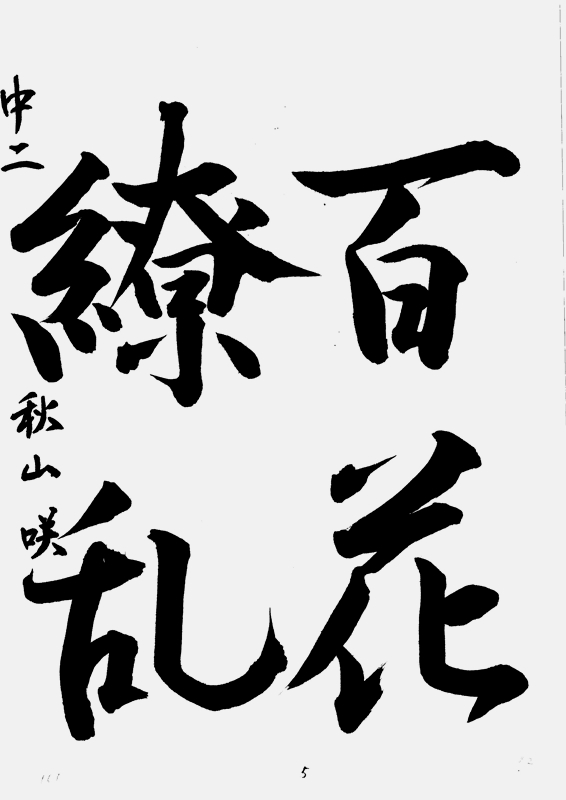 百花
繚乱
中二 秋山 咲
5